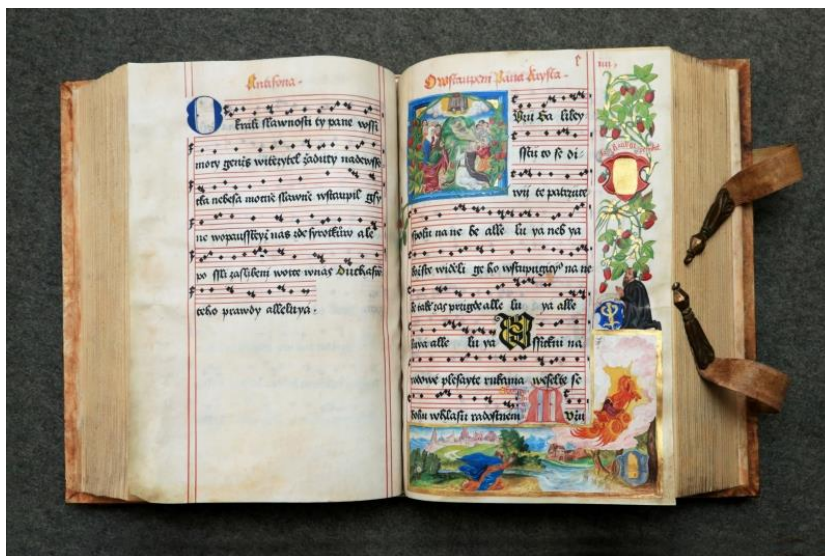 Antifona
O krali slawnosti ty pane wssi
moty genž witězytel žaduty nadewssy
tka nebesa motně slawně wstaupil gsy
ne wopausstěyž nas zde syrotkůw ale
po ssli zaslibeni wotce wnas Ducha swa
teho prawdy alleluya
O wstaupeni Pana Krysta
Muži Galiley
sstu co se di
wij te patrzyte
na ne be alle lu ya neb ya
widěli ge ho na ne
be tak zas przigde alle lu ya alle
luya alle lu ya Wssickni na
rodowe plesayte rukama weselte se
bohu whlasu radostnem